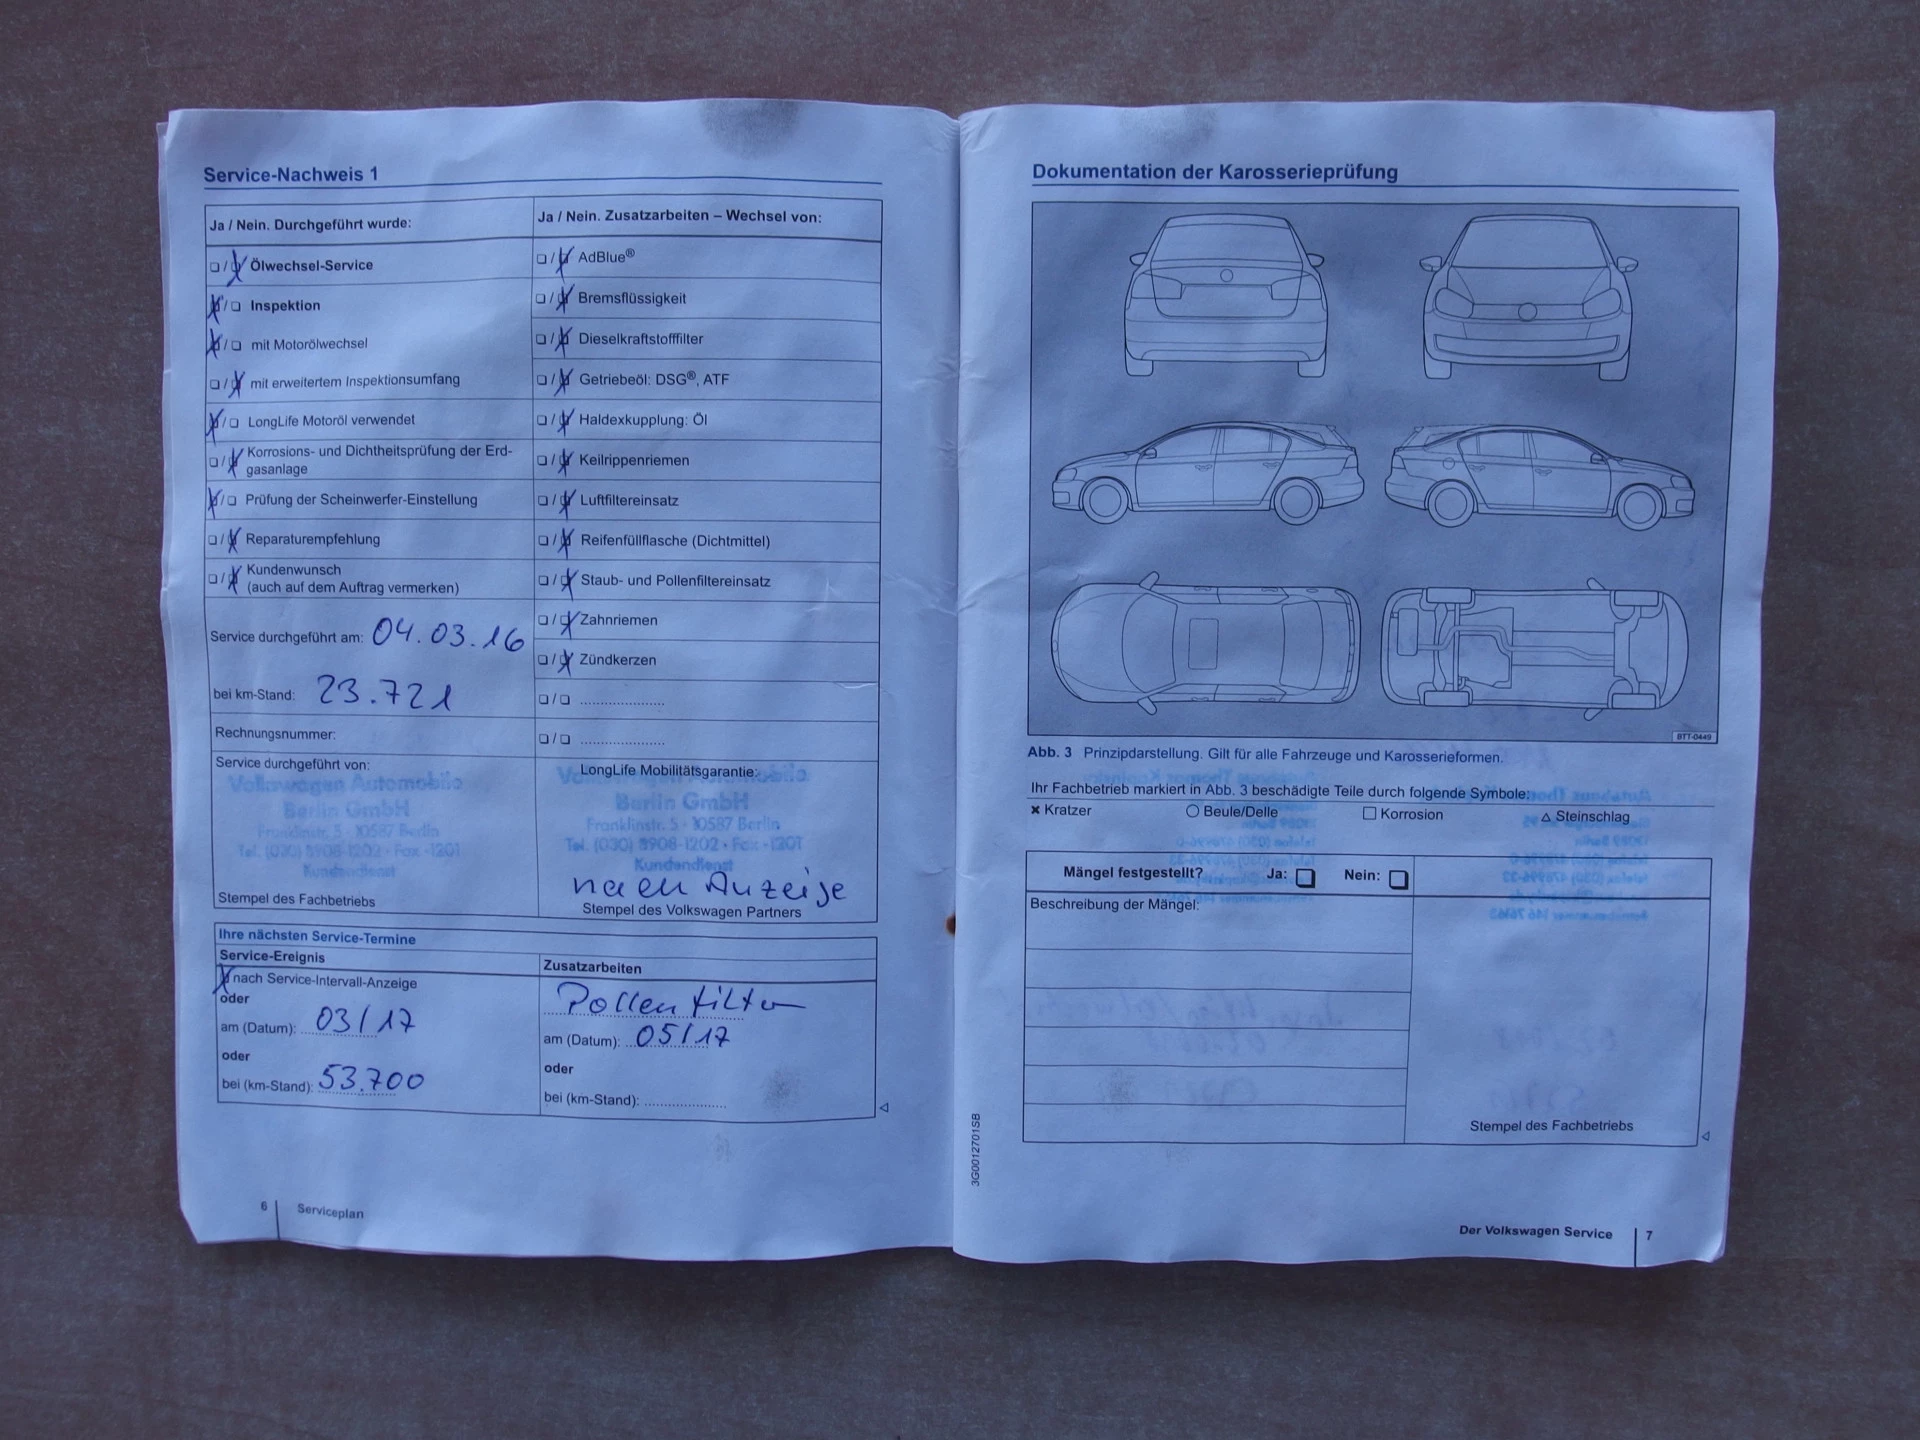 Service-Nachweis 1
Ja / Nein. Durchgeführt wurde:
Ölwechsel-Service
Inspektion
mit Motorölwechsel
mit erweitertem Inspektionsumfang
LongLife Motoröl verwendet
Korrosions- und Dichtheitsprüfung der Erd-
gasanlage
Prüfung der Scheinwerfer-Einstellung
Reparaturempfehlung
Kundenwunsch
(auch auf dem Auftrag vermerken)
Service durchgeführt am: 04.03.16
bei km-Stand: 23.721
Rechnungsnummer:
Service durchgeführt von:
Volkswagen Automobile
Berlin GmbH
Franklinstr. 5 · 10587 Berlin
Tel. (030) 8908-1202 · Fax -1201
Kundendienst
Stempel des Fachbetriebs
Ja / Nein. Zusatzarbeiten – Wechsel von:
AdBlue®
Bremsflüssigkeit
Dieselkraftstofffilter
Getriebeöl: DSG®, ATF
Haldexkupplung: Öl
Keilrippenriemen
Luftfiltereinsatz
Reifenfüllflasche (Dichtmittel)
Staub- und Pollenfiltereinsatz
Zahnriemen
Zündkerzen
LongLife Mobilitätsgarantie:
Volkswagen Automobile
Berlin GmbH
Franklinstr. 5 · 10587 Berlin
Tel. (030) 8908-1202 · Fax -1201
Kundendienst
nach Anzeige
Stempel des Volkswagen Partners
Ihre nächsten Service-Termine
Service-Ereignis
nach Service-Intervall-Anzeige
oder
am (Datum): 03/17
oder
bei (km-Stand): 53.700
Zusatzarbeiten
Pollenfilter
am (Datum): 05/17
oder
bei (km-Stand):
6 Serviceplan
3G0012701SB
Dokumentation der Karosserieprüfung
BTT-0449
Abb. 3 Prinzipdarstellung. Gilt für alle Fahrzeuge und Karosserieformen.
Ihr Fachbetrieb markiert in Abb. 3 beschädigte Teile durch folgende Symbole:
Kratzer Beule/Delle Korrosion Steinschlag
Mängel festgestellt? Ja: Nein:
Beschreibung der Mängel:
Stempel des Fachbetriebs
Der Volkswagen Service 7